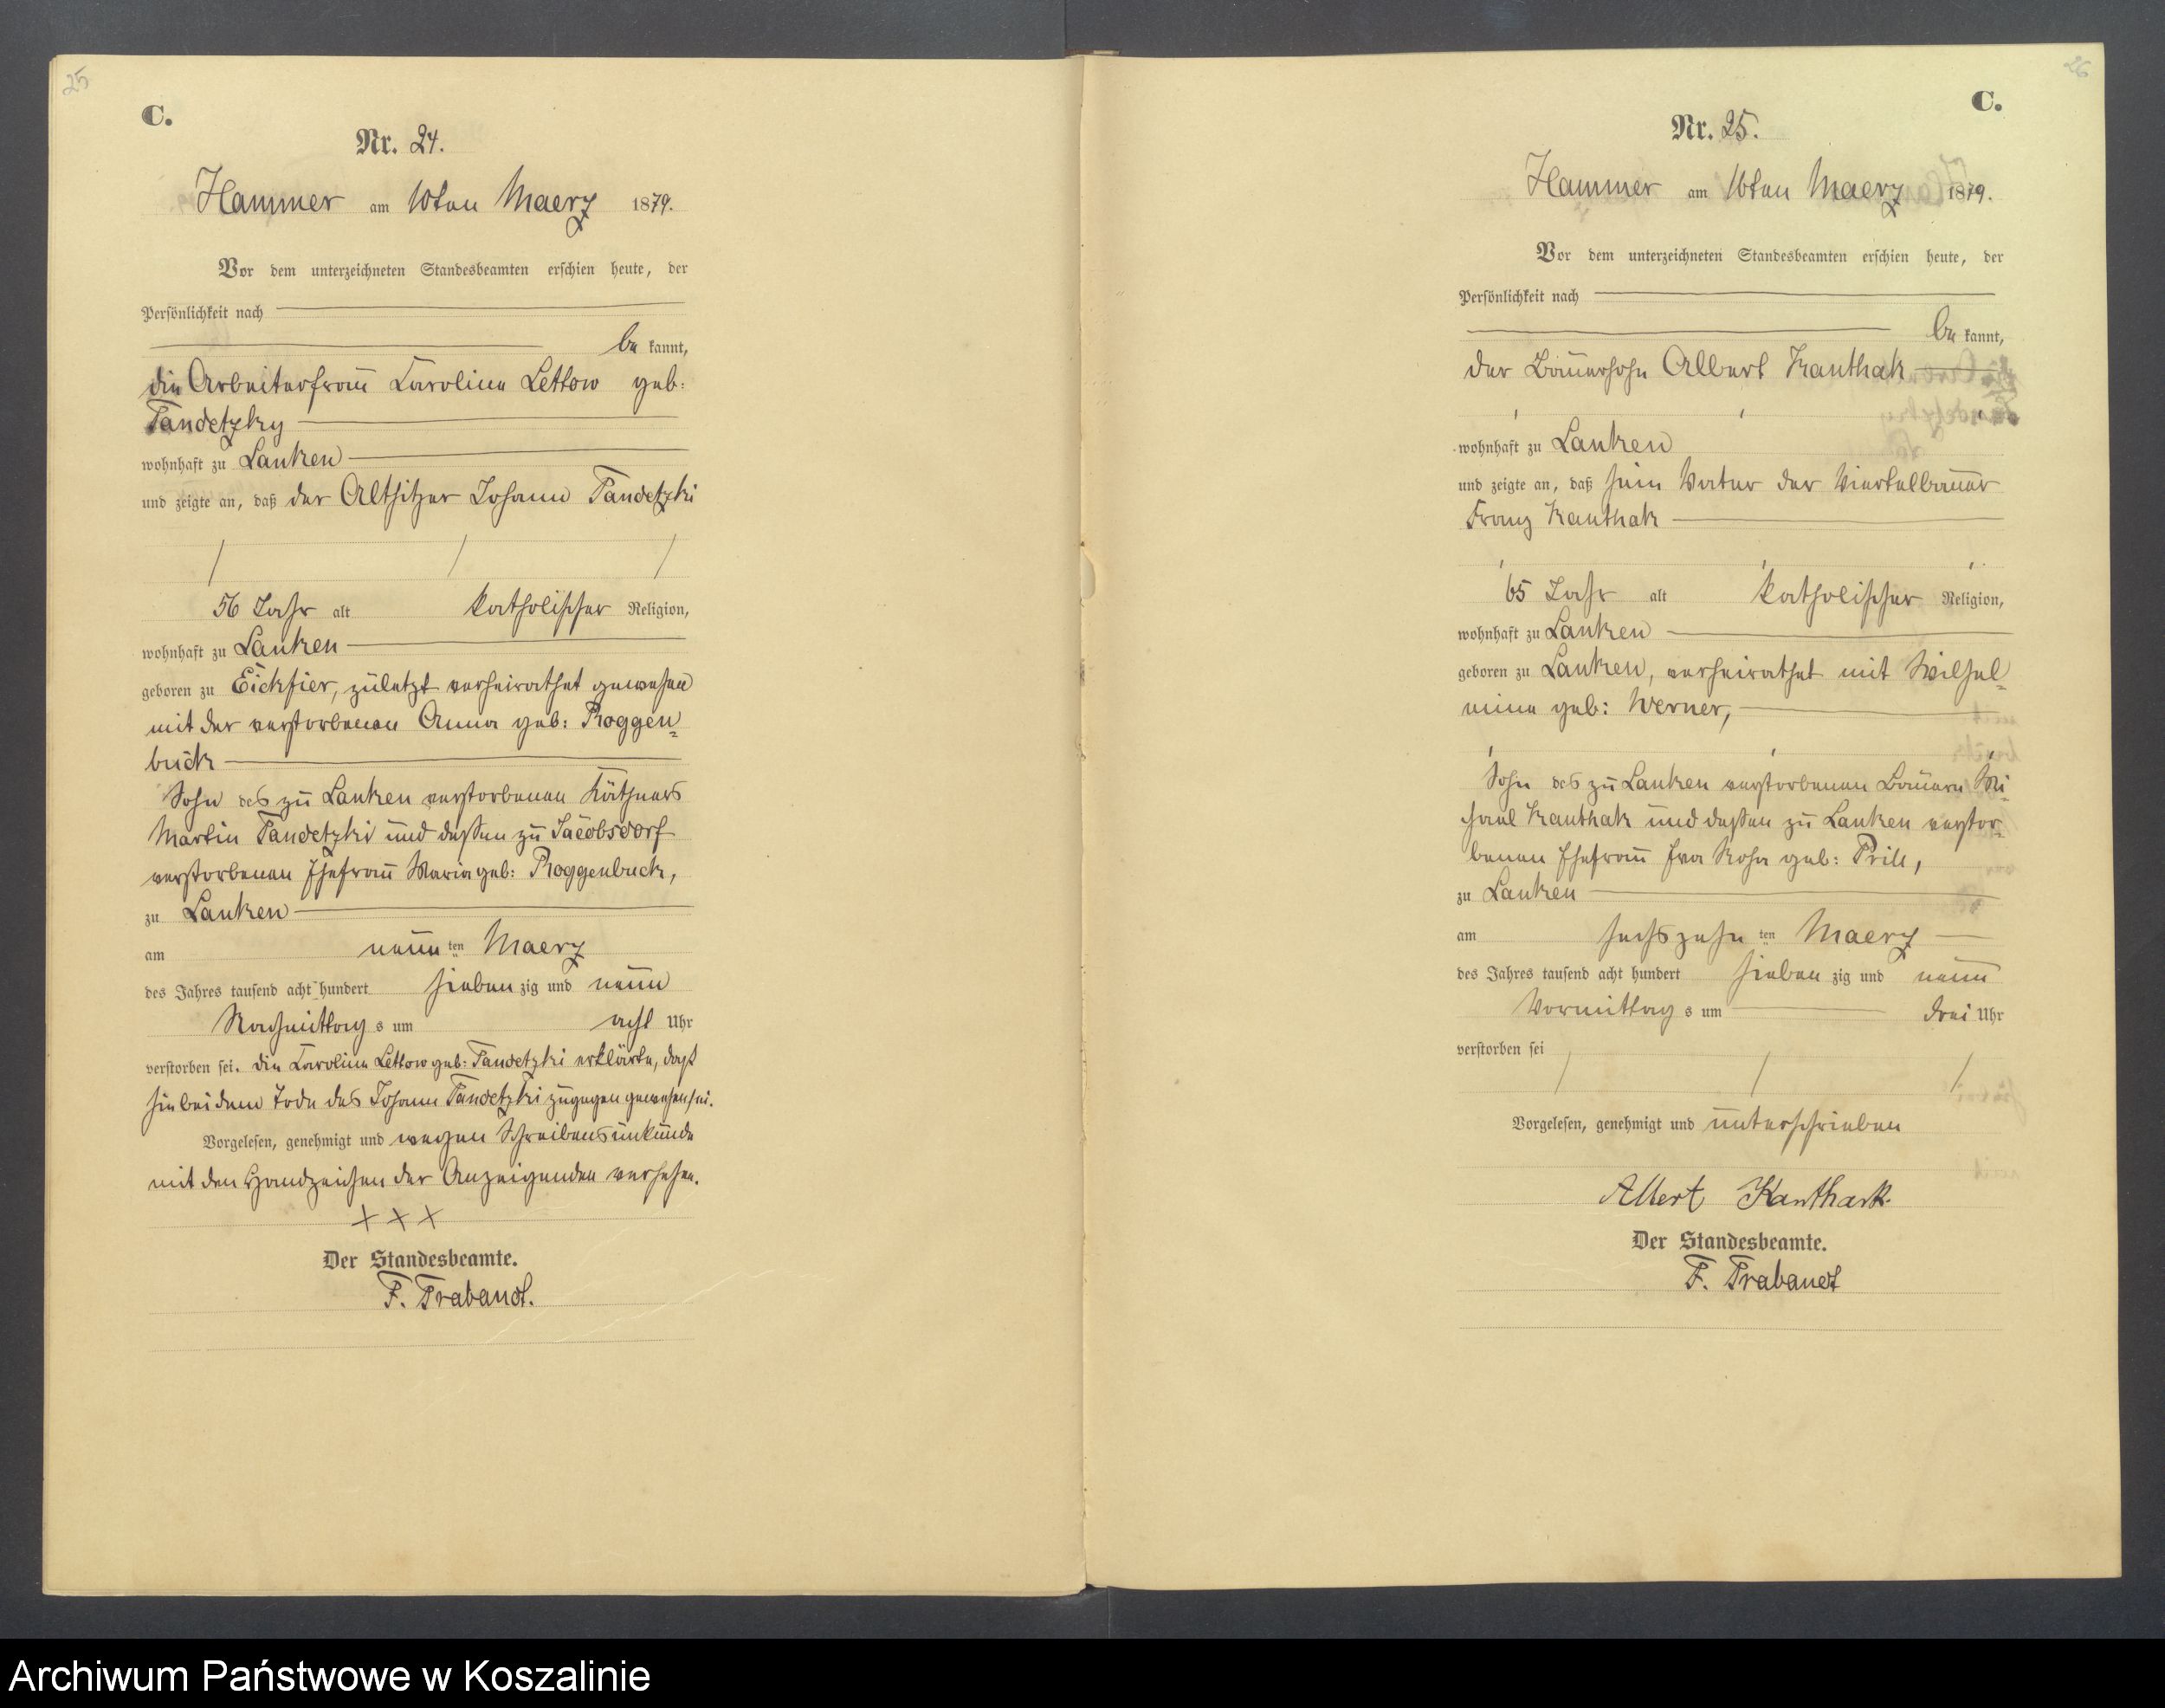 25
C.
Nr. 24.
Hammer am 10ten Maerz 1879.
Vor dem unterzeichneten Standesbeamten erschien heute, der
Persönlichkeit nach
be kannt,
die Arbeiterfrau Caroline Lettow geb:
Tandetzky
wohnhaft zu Lanken
und zeigte an, daß der Altsitzer Johann Tandetzki
56 Jahr alt katholischer Religion,
wohnhaft zu Lanken
geboren zu Eickfier, zuletzt verheirathet gewesen
mit der verstorbenen Anna geb: Roggen=
buck
Sohn des zu Lanken verstorbenen Käthners
Martin Tandetzki und dessen zu Jacobsdorf
verstorbenen Ehefrau Maria geb: Roggenbuck,
zu Lanken
am neun ten Maerz
des Jahres tausend acht hundert sieben zig und neun
Nachmittag s um acht Uhr
verstorben sei. die Caroline Lettow geb: Tandetzki erklärte, daß
sie bei dem Tode des Johann Tandetzki zugegen gewesen sei.
Vorgelesen, genehmigt und wegen Schreibensunkunde
mit den Handzeichen der Anzeigenden versehen.
+ + +
Der Standesbeamte.
F. Trabandt.
26
C.
Nr. 25.
Hammer am 16ten Maerz 1879.
Vor dem unterzeichneten Standesbeamten erschien heute, der
Persönlichkeit nach
be kannt,
der Bauersohn Albert Kanthak
wohnhaft zu Lanken
und zeigte an, daß sein Vater der Viertelbauer
Franz Kanthak
65 Jahr alt katholischer Religion,
wohnhaft zu Lanken
geboren zu Lanken, verheirathet mit Wilhel=
mine geb: Werner,
Sohn des zu Lanken verstorbenen Bauern Mi=
chael Kanthak und dessen zu Lanken verstor=
benen Ehefrau Eva Rosa geb: Prill,
zu Lanken
am sechszehn ten Maerz
des Jahres tausend acht hundert sieben zig und neun
Vormittag s um drei Uhr
verstorben sei
Vorgelesen, genehmigt und unterschrieben
Albert Kanthak
Der Standesbeamte.
F. Trabandt
Archiwum Państwowe w Koszalinie